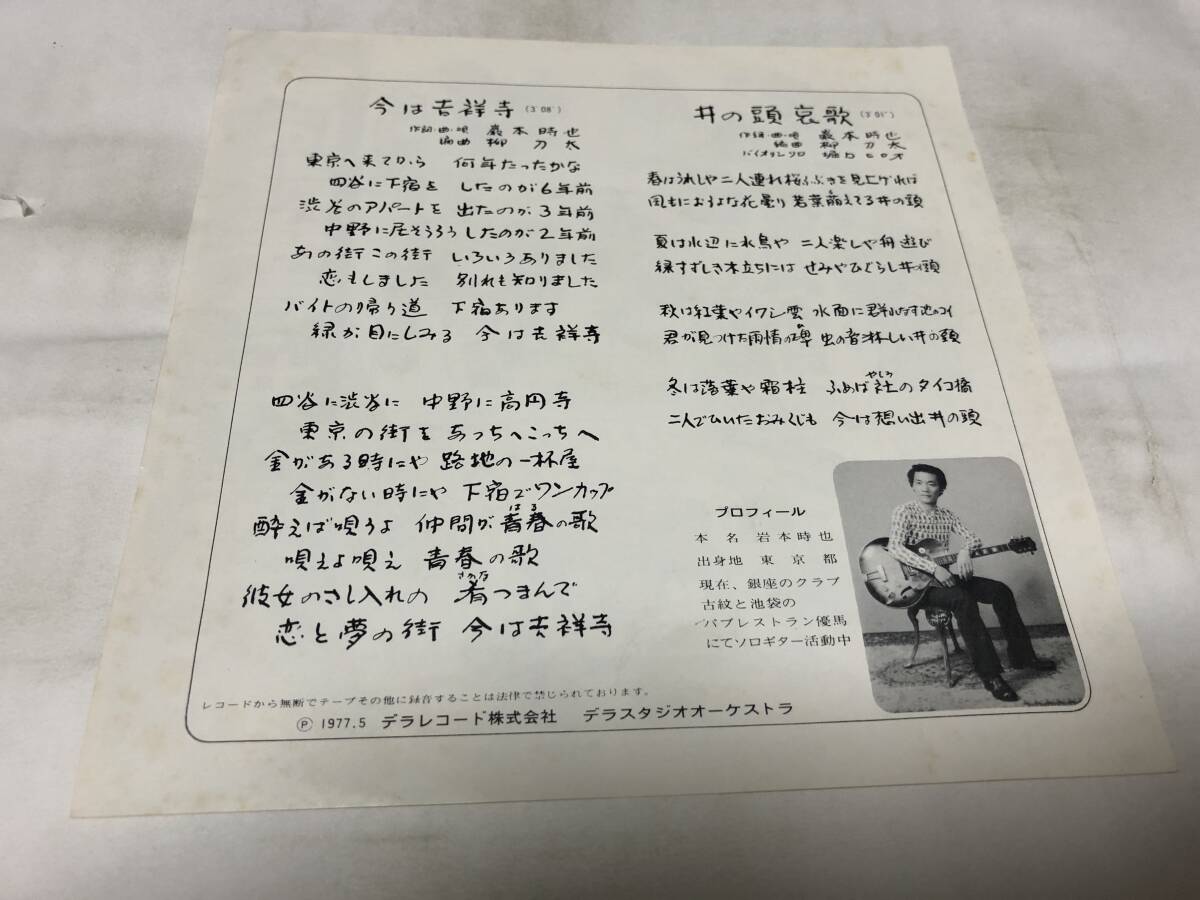 今は吉祥寺 (3'08")
作詞・曲・唄 巌本時也
編曲 柳刀太
東京へ来てから 何年たったかな
四谷に下宿を したのが6年前
渋谷のアパートを 出たのが3年前
中野に居そうろう したのが2年前
あの街この街 いろいろありました
恋もしました 別れも知りました
バイトの帰り道 下宿あります
緑が目にしみる 今は吉祥寺
四谷に渋谷に 中野に高円寺
東京の街を あっちへこっちへ
金がある時にゃ 路地の一杯屋
金がない時にゃ 下宿でワンカップ
酔えば唄うよ 仲間が青春の歌
はる
唄えよ唄え 青春の歌
彼女のさし入れの 肴つまんで
さかな
恋と夢の街 今は吉祥寺
井の頭哀歌 (3'01")
作詞・曲・唄 巌本時也
編曲 柳刀太
バイオリンソロ 堀ひろオ
春はうれしや二人連れ 桜ふぶきを見上げれば
風もにおうよな花曇り 若葉萌えてる井の頭
夏は水辺に水鳥や 二人楽しや舟遊び
緑すずしき木立ちには せみやひぐらし井の頭
秋は紅葉やイワシ雲 水面に群れなす池のコイ
君が見つけた雨情の碑 虫の音淋しい井の頭
冬は落葉や霜柱 ふめば社のタイコ橋
やしろ
二人でひいたおみくじも 今は想い出井の頭
プロフィール
本名 岩本時也
出身地 東京都
現在、銀座のクラブ
古紋と池袋の
パブレストラン優馬
にてソロギター活動中
レコードから無断でテープその他に録音することは法律で禁じられております。
Ⓟ 1977.5 デラレコード株式会社 デラスタジオオーケストラ